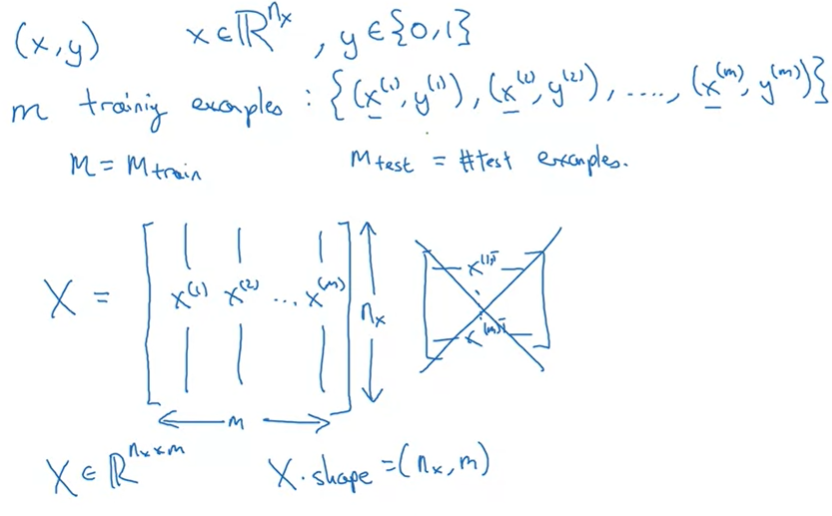 (x,y) x∈ℝ^{n_x}, y∈{0,1}
m training examples : {(x^{(1)}, y^{(1)}), (x^{(2)}, y^{(2)}), ...., (x^{(m)}, y^{(m)})}
M = M_train M_test = #test examples.
X = [x^{(1)} x^{(2)} ... x^{(m)}] n_x
x^{(1)T}
x^{(m)T}
m
X ∈ ℝ^{n_x × m} X.shape = (n_x, m)